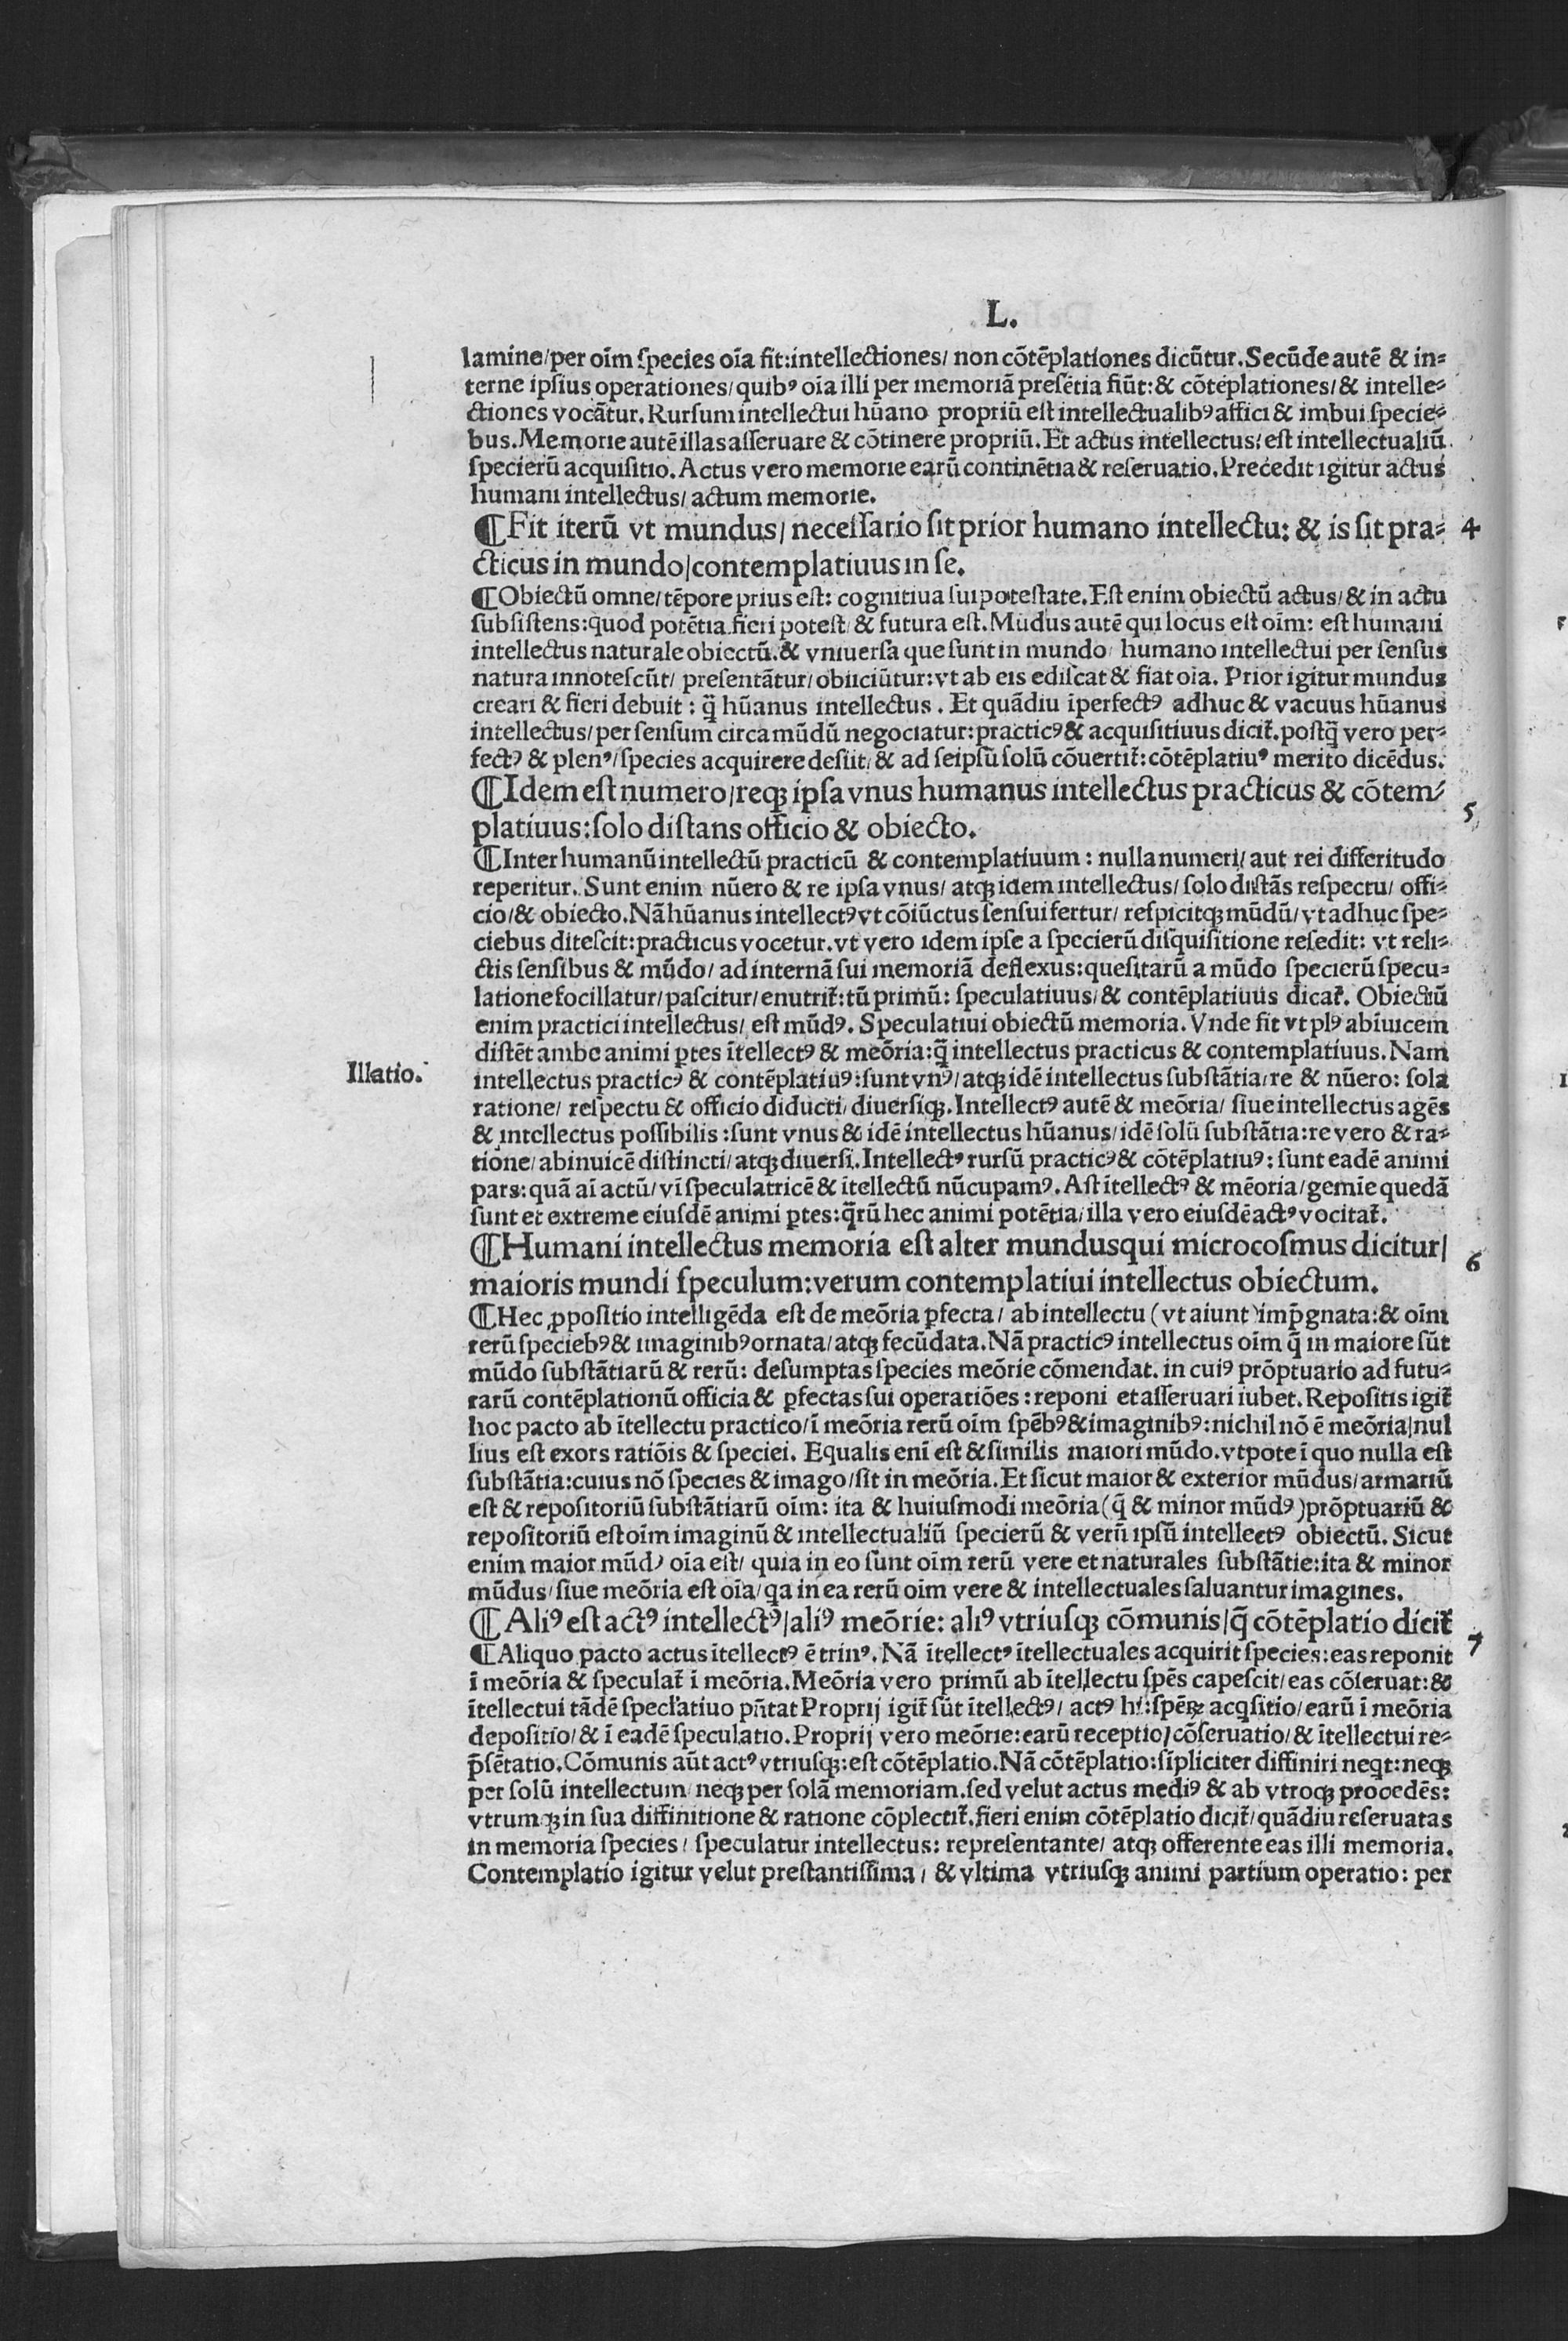 L.
lamine/per oīm species oīa fit:intellectiones/ non cōtēplationes dicūtur.Secūde autē & in=
terne ipsius operationes/quibꝰ oīa illi per memoriā presētia fiūt:& cōtēplationes/& intelle=
ctiones vocātur.Rursum intellectui hūano propriū est intellectualibꝰ affici & imbui specie=
bus.Memorie autē illas asseruare & cōtinere propriū.Et actus intellectus/est intellectualiū
specierū acquisitio.Actus vero memorie earū continētia & reseruatio.Precedit igitur actus
humani intellectus/actum memorie.
¶Fit iterū vt mundus/necessario sit prior humano intellectu:& is sit pra= 4
cticus in mundo/contemplatiuus in se.
¶Obiectū omne/tēpore prius est: cognitiua sui potestate.Est enim obiectū actus/& in actu
subsistens:quod potētia fieri potest/& futura est.Mūdus autē qui locus est oīm: est humani
intellectus naturale obiectū.& vniuersa que sunt in mundo/ humano intellectui per sensus
natura innotescūt/ presentātur/obiiciūtur:vt ab eis ediscat & fiat oīa. Prior igitur mundus
creari & fieri debuit : q̄ hūanus intellectus . Et quādiu īperfectꝰ adhuc & vacuus hūanus
intellectus/per sensum circa mūdū negociatur:practicꝰ & acquisitiuus dicit᷑.postq̄ vero per=
fectꝰ & plenꝰ/species acquirere desiit/& ad seipsū solū cōuertit᷑:cōtēplatiuꝰ merito dicēdus.
¶Idem est numero/reqꝫ ipsa vnus humanus intellectus practicus & cōtem=
platiuus:solo distans officio & obiecto. 5
¶Inter humanū intellectū practicū & contemplatiuum : nulla numeri/ aut rei differitudo
reperitur. Sunt enim nūero & re ipsa vnus/ atqꝫ idem intellectus/ solo distās respectu/ offi=
cio/& obiecto.Nā hūanus intellectꝰ vt cōiūctus sensui fertur/ respicitqꝫ mūdū/vt adhuc spe=
ciebus ditescit:practicus vocetur.vt vero idem ipse a specierū disquisitione resedit: vt reli=
ctis sensibus & mūdo/ ad internā sui memoriā deflexus:quesitarū a mūdo specierū specu=
latione focillatur/pascitur/enutrit᷑:tū primū: speculatiuus/& contēplatiuus dicat᷑. Obiectū
enim practici intellectus/ est mūdꝰ. Speculatiui obiectū memoria. Vnde fit vt plꝰ abīuicem
distēt ambe animi ꝑtes ītellectꝰ & meōria:q̄ intellectus practicus & contemplatiuus.Nam
Illatio. intellectus practicꝰ & contēplatiuꝰ:sunt vnꝰ/atqꝫ idē intellectus substātia/re & nūero: sola
ratione/ respectu & officio diducti/diuersiqꝫ.Intellectꝰ autē & meōria/ siue intellectus agēs
& intellectus possibilis :sunt vnus & idē intellectus hūanus/idē solū substātia:re vero & ra=
tione/abinuicē distincti/atqꝫ diuersi.Intellectꝰ rursū practicꝰ & cōtēplatiuꝰ: sunt eadē animi
pars:quā aī actū/vī speculatricē & ītellectū nūcupamꝰ.Ast ītellectꝰ & mēoria/gemīe quedā
sunt et extreme eiusdē animi ꝑtes:q̄rū hec animi potētia/illa vero eiusdē actꝰ vocitat᷑.
¶Humani intellectus memoria est alter mundusqui microcosmus dicitur/
maioris mundi speculum:verum contemplatiui intellectus obiectum. 6
¶Hec ꝓpositio intelligēda est de meōria ꝑfecta/ ab intellectu (vt aiunt)imp̄gnata:& oīm
rerū speciebꝰ & imaginibꝰ ornata/atqꝫ fecūdata.Nā practicꝰ intellectus oīm q̄ in maiore sūt
mūdo substātiarū & rerū: desumptas species meōrie cōmendat. in cuiꝰ prōptuario ad futu=
rarū contēplationū officia & ꝑfectas sui operatiōes : reponi et asseruari iubet.Repositis igit᷑
hoc pacto ab ītellectu practico/ī meōria rerū oīm spēbꝰ & imaginibꝰ:nichil nō ē meōria/nul
lius est exors ratiōis & speciei. Equalis enī est & similis maiori mūdo.vtpote ī quo nulla est
substātia:cuius nō species & imago/sit in meōria.Et sicut maior & exterior mūdus/armariū
est & repositoriū substātiarū oīm: ita & huiusmodi meōria(q̄ & minor mūdꝰ)prōptuariū &
repositoriū est oīm imaginū & intellectualiū specierū & verū ipsū intellectꝰ obiectū. Sicut
enim maior mūdꝰ oīa est/ quia in eo sunt oīm rerū vere et naturales substātie:ita & minor
mūdus/siue meōria est oīa/qa in ea rerū oīm vere & intellectuales saluantur imagines.
¶Aliꝰ est actꝰ intellectꝰ/aliꝰ meōrie: aliꝰ vtriusqꝫ cōmunis/q̄ cōtēplatio dicit᷑
¶Aliquo pacto actus ītellectꝰ ē trinꝰ. Nā ītellectꝰ ītellectuales acquirit species:eas reponit 7
ī meōria & speculat᷑ ī meōria.Meōria vero primū ab ītellectu spēs capescit/eas cōseruat:&
ītellectui tādē specl'atiuo pn̄tat Proprij igit᷑ sūt ītellectꝰ/ actꝰ hi:spēꝝ acq̇sitio/earū ī meōria
depositio/& ī eadē speculatio.Proprij vero meōrie:earū receptio/cōseruatio/& ītellectui re=
p̄sētatio.Cōmunis aūt actꝰ vtriusqꝫ:est cōtēplatio.Nā cōtēplatio:sīpliciter diffiniri neq̇t:neqꝫ
per solū intellectum/neqꝫ per solā memoriam.sed velut actus mediꝰ & ab vtroqꝫ procedēs:
vtrumqꝫ in sua diffinitione & ratione cōplectit᷑.fieri enim cōtēplatio dicit᷑/quādiu reseruatas
in memoria species/ speculatur intellectus: representante/ atqꝫ offerente eas illi memoria.
Contemplatio igitur velut prestantissima/ & vltima vtriusqꝫ animi partium operatio: per